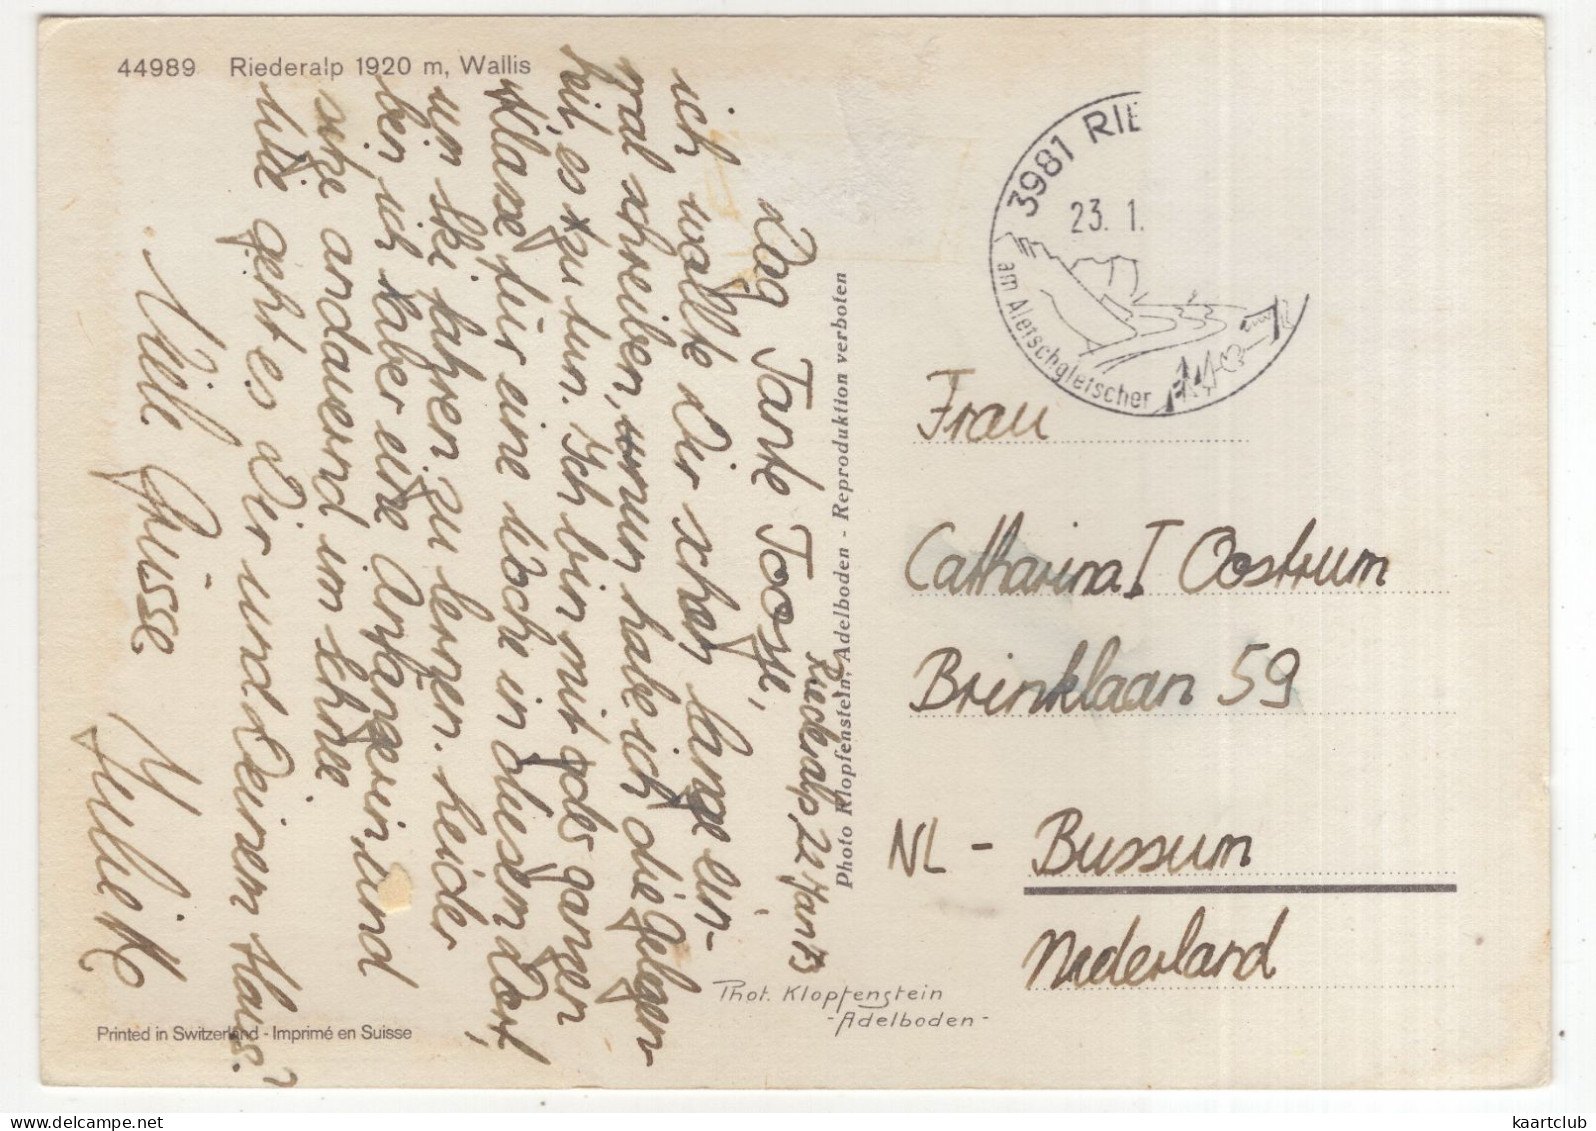 44989 Riederalp 1920 m, Wallis
Riederalp, 22 Jan 73
Dag Tante Toosje,
ich wollte Dir schon lange ein-
mal schreiben, nun habe ich die Gelegen-
heit, es zu tun. Ich bin mit der ganzen
Klasse für eine Woche in diesem Dorf,
um Ski fahren zu lernen. Leider
bin ich aber eine Anfängerin und
sitze andauernd im Schnee
Wie geht es Dir und Deinem Haus?
Viele Grüsse
Photo Klopfenstein, Adelboden - Reproduktion verboten
Phot. Klopfenstein
- Adelboden -
Printed in Switzerland - Imprimé en Suisse
3981 RIE
23. 1.
am Aletschgletscher
Frau
Catharina I Oostrum
Brinklaan 59
NL - Bussum
Nederland
kaartclub